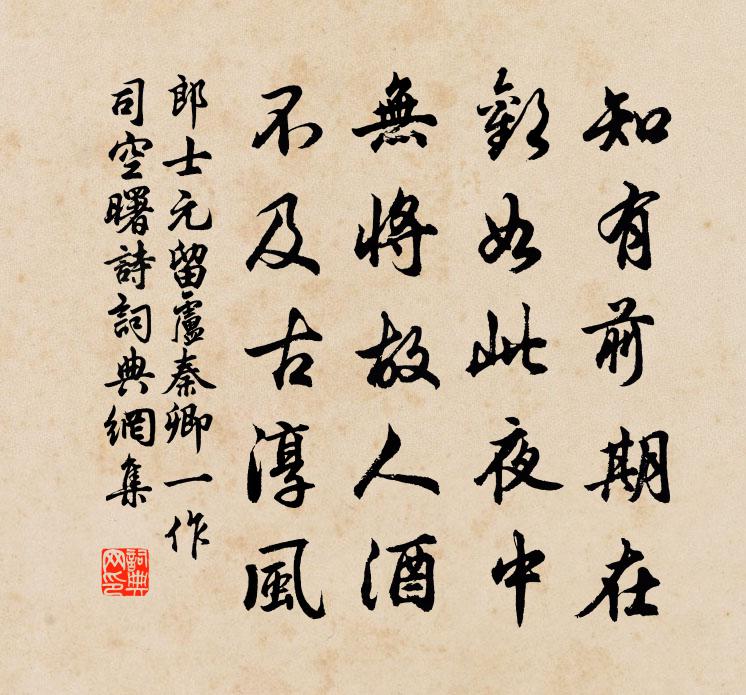 知有前期在
歡如此夜中
無將故人酒
不及古淳風
郎士元留盧秦卿一作
司空曙詩詞典網集
詞典
网印